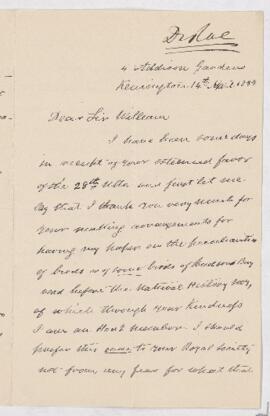 Dr Rae
4 Addison Gardens
Kensington 14th April 1889
Dear Sir William
I have been some days
in receipt of your esteemed favor
of the 28th Ulto. and first let me
say that I thank you very much for
your making arrangements for
having my paper on the peculiarities
of birds or of some birds of Hudsons Bay
read before the National History Socy,
of which through your Kindness
I am an Hony Member. I should
prefer this one to your Royal Society
not from any fear for what that